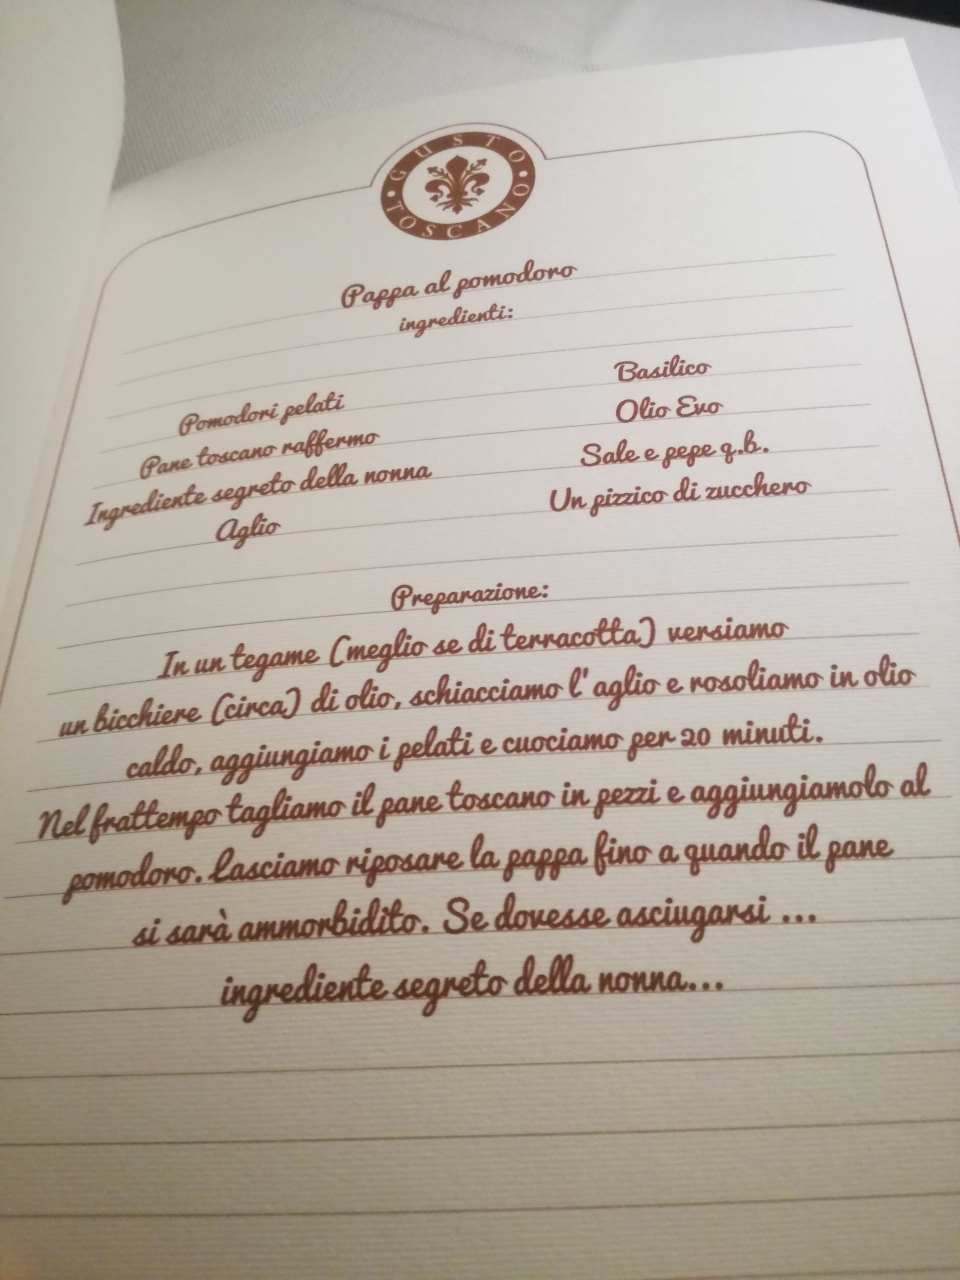 GUSTO
TOSCANO
Pappa al pomodoro
ingredienti:
Pomodori pelati
Pane toscano raffermo
Ingrediente segreto della nonna
Aglio
Basilico
Olio Evo
Sale e pepe q.b.
Un pizzico di zucchero
Preparazione:
In un tegame (meglio se di terracotta) versiamo
un bicchiere (circa) di olio, schiacciamo l' aglio e rosoliamo in olio
caldo, aggiungiamo i pelati e cuociamo per 20 minuti.
Nel frattempo tagliamo il pane toscano in pezzi e aggiungiamolo al
pomodoro. Lasciamo riposare la pappa fino a quando il pane
si sarà ammorbidito. Se dovesse asciugarsi ...
ingrediente segreto della nonna...